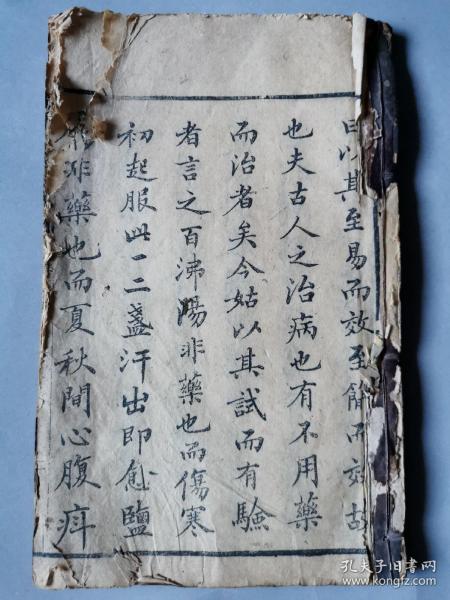 曰以其至易而效至簡而效故
也夫古人之治病也有不用藥
而治者矣今姑以其試而有驗
者言之百沸湯非藥也而傷寒
初起服此一二盞汗出即愈鹽
湯非藥也而夏秋間心腹痛
孔夫子旧书网
www.kongfz.com